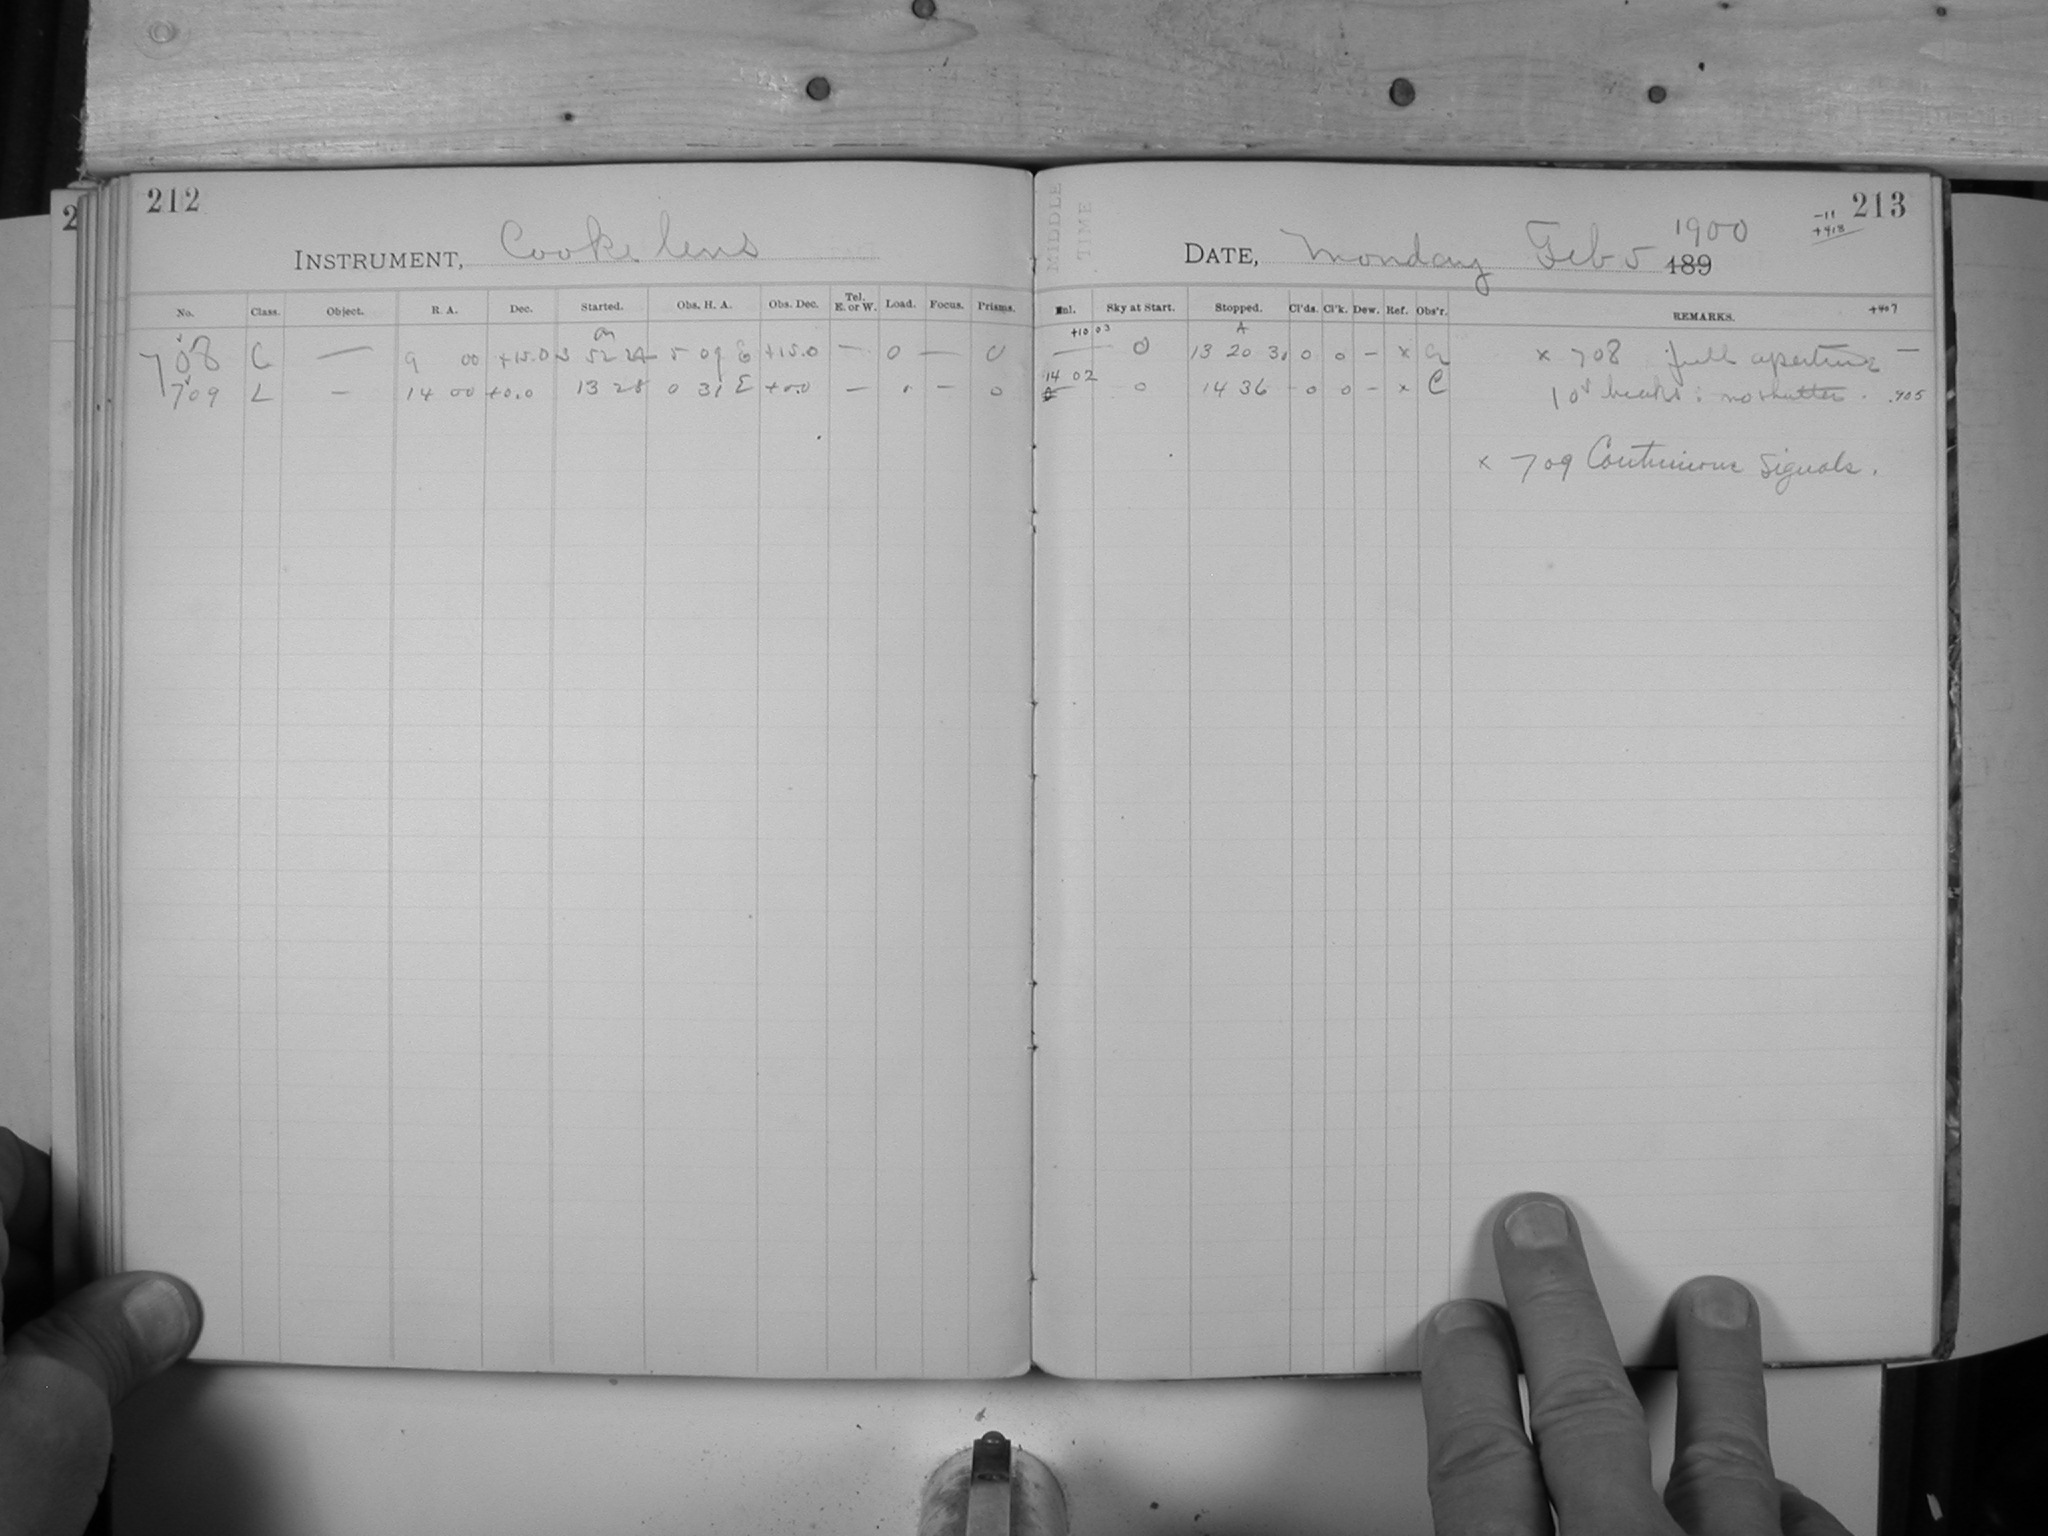 212
INSTRUMENT, Cooke lens
No. Class. Object. R. A. Dec. Started. Obs. H. A. Obs. Dec. Tel. E. or W. Load. Focus. Prisms.
708 C — 9 00 +15.0 3 52 24 5 09 E +15.0 — 0 — 0
709 L — 14 00 +0.0 13 28 0 31 E +0.0 — . — 0
2
MIDDLE TIME
213
-11
+418
1900
DATE, Monday Feb 5 189
Sky at Start. Stopped. Cl'ds. Cl'k. Dew. Ref. Obs'r. REMARKS. +407
+10 03 A
— 0 13 20 31 0 0 — x x 708 full aperture —
14 02 0 14 36 0 0 — x C 10s breaks : no shutter . .405
x 709 Continuous signals.